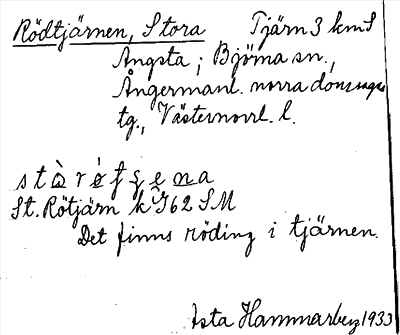 Rödtjärnen, Stora Tjärn 3 km S
Ångsta; Björna sn.,
Ångermanl. norra domsaga
tg., Västernorrl. l.
St. Rötjärn k J62 SM
Det finns röding i tjärnen.
Asta Hammarberg 1933